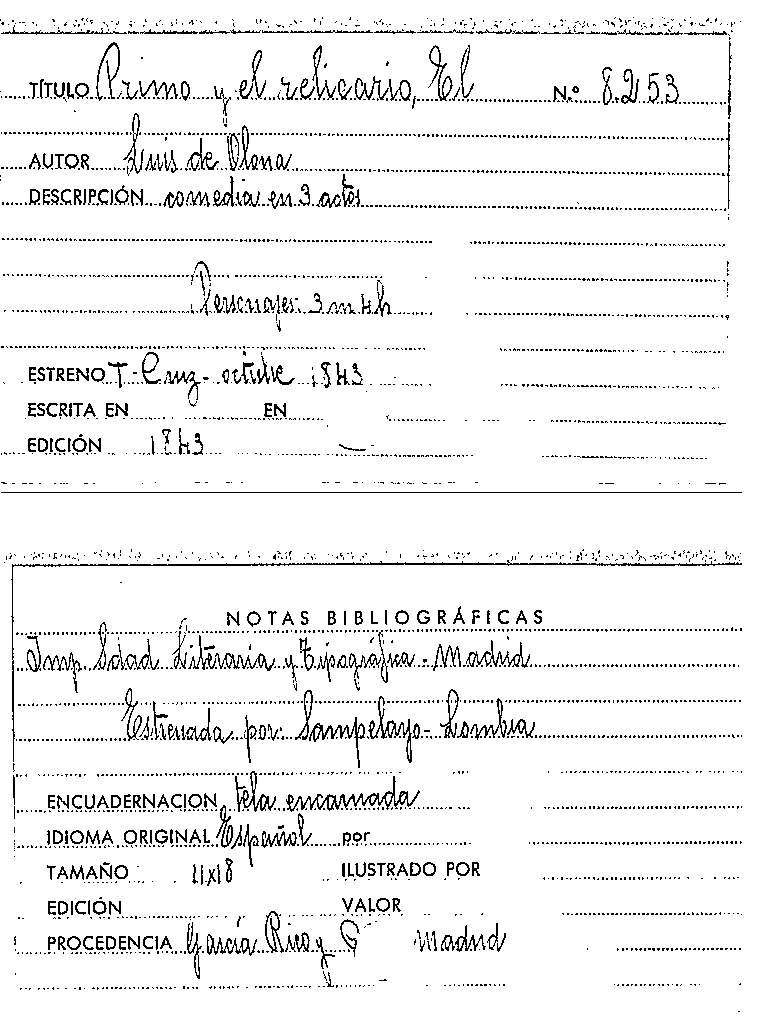 TÍTULO Primo y el relicario, El N.º 8.253
AUTOR Luis de Olona
DESCRIPCIÓN comedia en 3 actos
Personajes: 3 m 4 h
ESTRENO T. Cruz - octubre 1843
ESCRITA EN EN
EDICIÓN 1843 —
NOTAS BIBLIOGRÁFICAS
Imp. Sdad Literaria y Tipográfica - Madrid
Estrenada por: Sampelayo - Lombia
ENCUADERNACION tela encarnada
IDIOMA ORIGINAL Español por
TAMAÑO 11x18 ILUSTRADO POR
EDICIÓN VALOR
PROCEDENCIA García Rico y Madrid